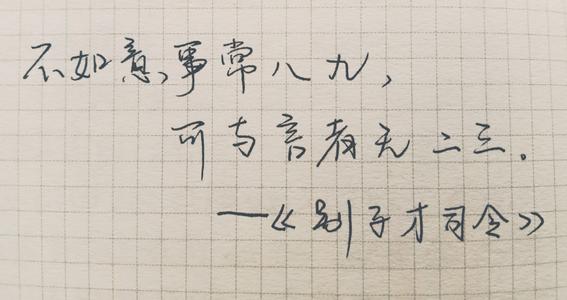 不如意事常八九,
可与言者无二三.
——《别子才司令》